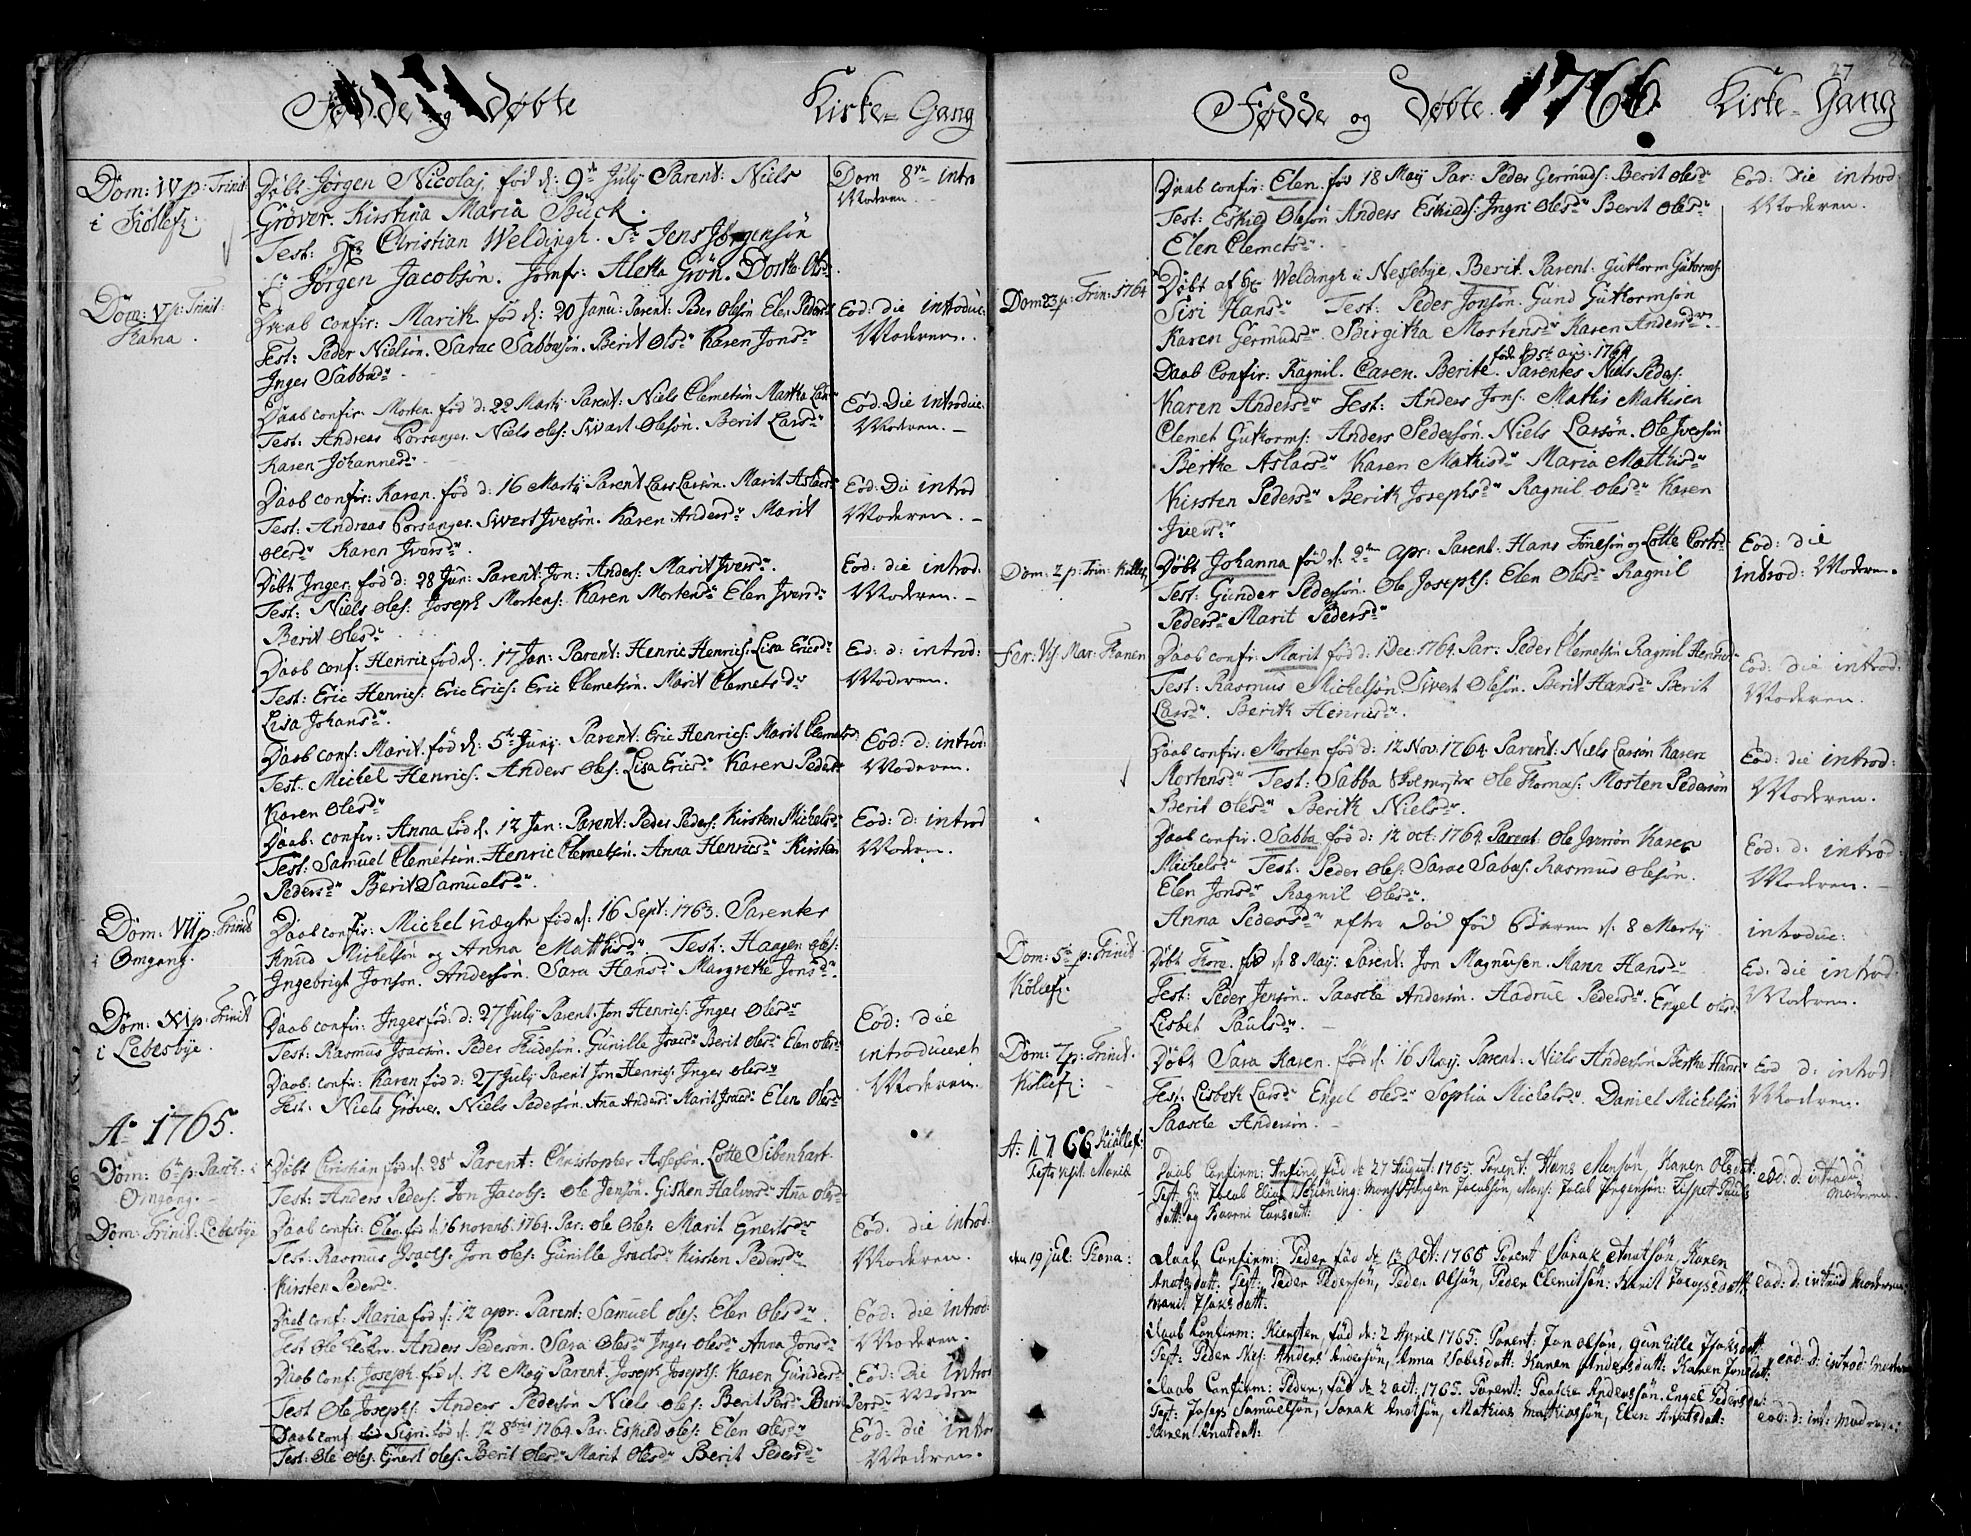 Fødde og Døbte
Kirke-Gang
Dom: IV p: Trinit:
i Kiøllef:
Døbt Jørgen Nicolaj. fød d: 9de July Parent: Niels
Grøver. Kirstina Maria Buck.
Test: Hr Christian Weldingh. Sr Jens Jørgensøn
Sr Jørgen Jacobsøn. Jomfr: Aletta Grøn. Dortka Olsdr
Dom 8va intro
Moderen.
Dom: V p: Trinit:
Tana.
Daab confir: Marith fød d: 20 Janu: Parent: Peder Olesøn Elen Pedersdr
Test: Peder Nielsøn. Sarac Sabbasøn. Berit Olsdr Karen Jonsdr
Inger Sabbadr
Eod: die introduc:
Moderen.
Daab confir: Morten. fød d: 22 Martij Parent: Niels Clemetsøn Martha Lar
Test. Andreas Porsanger. Niels Oles: Swart Olesøn. Berit Larsdr
Karen Johannesdr
Eod: Die introduc.
Moderen.
Daab confir: Karen. fød d: 16 Martij Parent Lars Larsøn. Marit Aslacsdr
Test: Andreas Porsanger. Siwert Iversøn. Karen Andersdr Marit
Olesdr Karen Iversdr.
Eod: Die introd
Moderen.
Døbt Inger. fød d: 28 Jun: Parent: Jon: Anders: Marit Iversdr.
Test: Niels Oles: Joseph Mortens: Karen Mortensdr Elen Iversdr
Berit Olesdr
Eod: die introd:
Moderen.
Daab conf: Henric fød d: 17 Jan: Parent: Henric Henrics: Lisa Ericsdr
Test: Eric Henrics: Eric Erics: Eric Clemetsøn. Marit Clemetsdr
Lisa Johansdr.
Eod: d: introd:
Moderen.
Daab conf: Marit. fød d: 5te Junij. Parent: Eric Henrics: Marit Clemetsdr
Test: Michel Henrics: Anders Oles: Lisa Ericsdr Karen Pedersdr
Karen Olesdr
Eod: d: introd:
Moderen.
Daab: confir: Anna fød d: 12 Jan: Parent: Peder Peders: Kirsten Michelsdr
Test: Samuel Clemetsøn. Henric Clemetsøn. Anna Henricsdr Kirsten
Pedersdr Berit Samuelsdr.
Eod: d: introd
Moderen.
Dom: VII p: Trinit
i Omgang.
Daab confir: Michel uægte fød d: 16 Sept: 1763. Parentes
Knud Michelsøn og Anna Matthisdr. Test: Haagen Oles:
Ingebrigt Jonsøn. Andersøn. Sara Hansdr Margrethe Jonsdr.
Dom: XI p: Trinit
i Lebesbye.
Daab confir: Inger fød: d: 27 July Parent: Jon Henrics: Inger Olesdr
Test: Rasmus Isacsøn. Peder Gunille Isacsdr Berit Olesdr Elen Olesdr
Eod: die
introduceret
Moderen.
Daab: confir: Karen fød d: 27 July Parent Jon Henrics: Inger Olesdr
Test: Niels Grøver. Niels Pedersøn. Anna Andersdr Marit Isacsdr Elen Olesdr
Ao 1765.
Dom: 6te p: Pasch: i
Omgang.
Døbt Christian fød d: 28de Parent: Christopher Lotte Sibenhart
Test: Anders Peders: Jon Jacobs: Ole Jensøn. Gisken Halvorsdr Anna Olesdr
Dom: Trinit: Lebesbye
Daab confir: Elen fød d: 16 novemb. 1764. Par. Ole Oles: Marit Gnertsdr
Test: Rasmus Isacs: Jon Oles: Gunille Isacsdr Kirsten Pedersdr
Kirsten Pedersdr
Eod: die introd.
Moderen.
Daab conf: Maria fød d: 12 apr: Parent: Samuel Oles: Elen Olesdr.
Test Ole Anders Pedersøn. Sara Olesdr Inger Olesdr Anna Jonsdr
Eod: die introd:
Moderen.
Daab conf: Joseph. fød d. 12 May Parent. Joseph Josephs: Karen Gundersdr
Test Ole Josephs: Anders Pedersøn Niels Oles: Berit Persdr Berit Persdr
Eod: Die introd
Moder
Daab conf Sigri: fød d: 12 8bris 1764. Par: Eskild Oles: Elen Olesdr
Test: Ole Oles. Gnert Oles: Berit Olesdr Marit Olesdr Berit Pedersdr
Eod: die introd
Moderen.
Fødde og Døbte. 1766.
Kirke-Gang
27
Daab confir: Elen. fød 18 May Par: Peder Germunds: Berit Olesdr
Test: Eskild Olesøn Anders Eskilds: Ingri Olesdr Berit Olesdr
Elen Clemetsdr.
Eod: die introd:
Moderen.
Dom 23 p: Trin: 1764
Døbt af Hr Weldingh i Nessebye. Berit. Parent: Guttorm Guttorms.
Siri Hansdr Test: Peder Jonsøn. Gund Guttormsøn
Karen Germundsdr Birgitha Mortensdr Karen Andersdr.
fød d 5te aug. 1764
Daab Confir: Ragnil. Caren. Berite. Parentes Niels Peders.
Karen Andersdr Test: Anders Jons: Mathis Mathisen
Clemet Guttorms: Anders Pedersøn. Niels Larsøn. Ole Iversøn
Berthe Aslacsdr Karen Mathisdr Maria Matthisdr
Kirsten Pedersdr Berith Josephsdr Ragnil Olesdr Karen
Iversdr
Dom: 2 p: Trin: Kiøllef
Døbt Johanna fød d. 2den apr: Parent: Hans Tønesøn og Lotte Cortsdr
Test: Gunder Pedersøn. Ole Josephs: Elen Olesdr Ragnil
Pedersdr Marit Pedersdr
Eod: die
introd: Moderen.
Fer: Vis Mar: Thanen
Daab confir: Marit fød d: 1 Dec: 1764. Par: Peder Clemetsøn Ragnil Henricsdr
Test: Rasmus Michelsøn. Sivert Olesøn. Berit Hansdr Berit
Larsdr. Berith Henricsdr.
Eod: die introd:
Moderen.
Daab confir: Morten fød d: 12 Nov. 1764. Parent: Niels Larsøn Karen
Mortensdr Test: Sabba Ole Thomas: Morten Pedersøn
Berit Olesdr Berith Nielsdr.
Eod: die introd:
Moderen.
Daab confir: Sabba fød d: 12 oct: 1764 Parent Ole Iversøn Karen
Michelsdr Test: Peder Oles: Sarac Sabas: Rasmus Olesøn.
Elen Jonsdr Ragnil Olesdr.
Eod: d: introd:
Moderen.
Anna Pedersdr efter Død fød Barn d: 8 Martij
introduc:
Dom: 5te p: Trinit
Kiøllef:
Døbt fød d. 8 May: Parent: Jon Magnusen. Maren Hansdr
Test: Peder Jensøn. Paasche Andersøn. Aadrue Pedersdr. Engel Olesdr
Lisbet Paulsdr.
Eod: die introd:
Moderen.
Dom: 7 p: Trinit.
Kiøllef:
Døbt Sara Karen. fød d. 16 May. Parent: Niels Andersøn Berthe Hansdr
Test: Lisbeth Larsdr Engel Olesdr Sophia Michelsdr. Daniel Michelsøn
Paasche Andersøn.
Eod d: introd:
Moderen.
A: 1766 Kiøllef:
Festo visit: Mariæ
Daab Confirm: Anfind fød d: 27 August: 1765. Parent: Hans Monsøn, Karen Olsdatt:
Test: Hr Jacob Elias Schiøning: Mons: Jørgen Jacobsøn, Mons: Jacob Jørgensøn: Lispet Pauls
datt: og Larsdatt:
eod: d: introdu
Moderen.
den 19 jul: Thana:
Daab Confirm: Peder fød d: 13 Oct: 1765 Parent Sarak Anutsøn, Karen
Anutsdatt: Test: Peder Pedersøn, Peder Olsøn, Peder Clemitsøn: Marit Jacopsdatt:
Marit Isaksdatt:
eod: d: introd Moderen
Daab Confirm: Kiersten, fød d: 2 April 1765. Parent: Jon Olsøn, Gunhille Isaksdatt
Test: Peder Anders Andersøn, Anna Karen Andersdatt: Karen Jonsdatt:
eod: d: introd: Moderen
Daab Confirm: Peder, fød d: 2 oct: 1765. Parent: Paasche Anderssøn. Engel Pedersdat:
Test: Joseps Samuelsøn, Sarak Anutsøn, Mathias Mathiassøn, Elen Anutsdatt:
Karen Anutdatt:
eod: d: int: moderen: